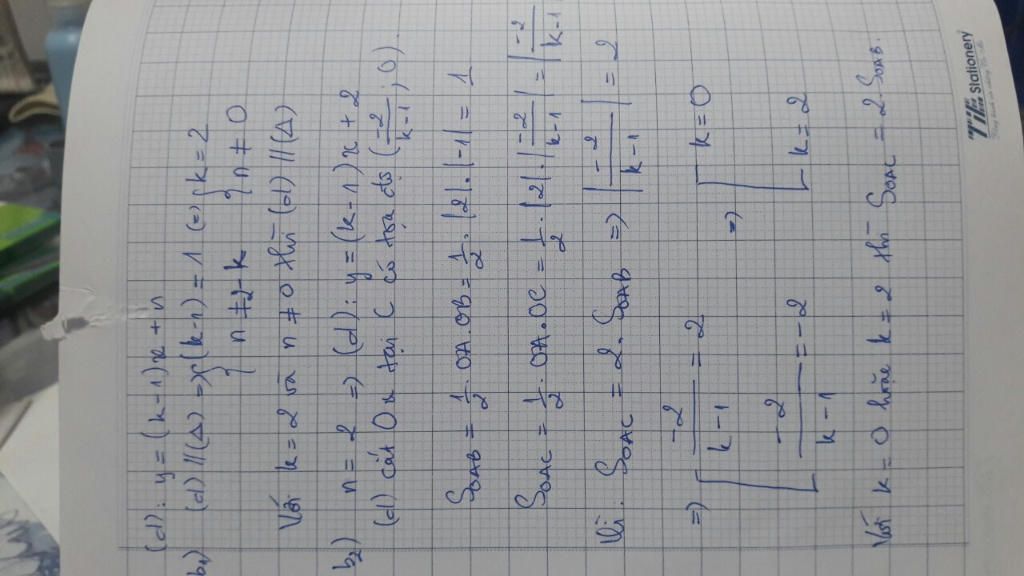 (d): y = (k-1)x + n
b₁) (d) // (Δ) => { (k-1) = 1 (=) { k = 2
n ≠ 2-k n ≠ 0
Với k = 2 và n ≠ 0 thì (d) // (Δ)
b₂) n = 2 => (d): y = (k-1)x + 2
(d) cắt Ox tại C có tọa độ (-2/(k-1); 0).
S_OAB = 1/2 . OA . OB = 1/2 . |2| . |-1| = 1
S_OAC = 1/2 . OA . OC = 1/2 . |2| . |-2/(k-1)| = |-2/(k-1)|
Vì: S_OAC = 2 . S_OAB => |-2/(k-1)| = 2
=> [ -2/(k-1) = 2 => [ k = 0
-2/(k-1) = -2 k = 2
Với k = 0 hoặc k = 2 thì S_OAC = 2 . S_OAB.
TiTi Stationery